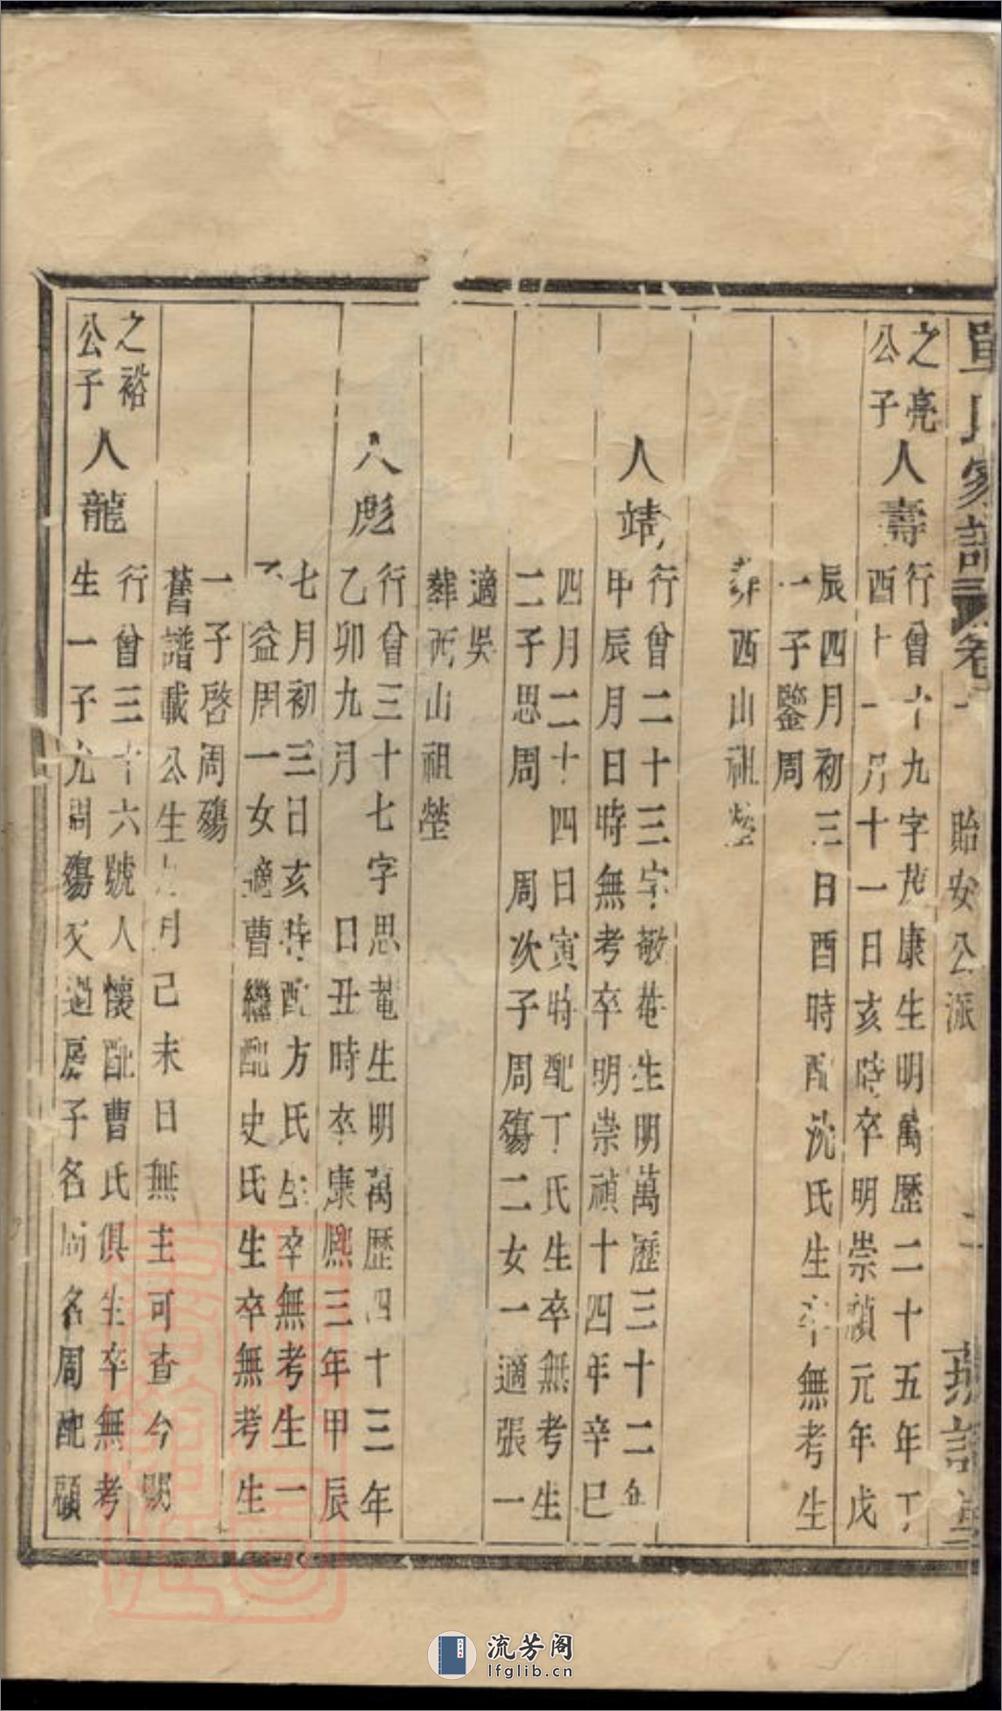 單氏家譜 卷 貽安公派 二
之亮
公子
人壽
行曾十九字茂康生明萬歷二十五年丁
酉十一月十一日亥時卒明崇禎元年戊
辰四月初三日酉時配沈氏生卒無考生
一子鑒周
葬西山祖塋
人靖
行曾二十三字敬菴生明萬歷三十二年
甲辰月日時無考卒明崇禎十四年辛巳
四月二十四日寅時配丁氏生卒無考生
二子思周 周次子周殤二女一適張一
適吳
葬西山祖塋
人彪
行曾三十七字思菴生明萬歷四十三年
乙卯九月 日丑時卒康熙三年甲辰
七月初三日亥時配方氏生卒無考生一
益周一女適曹繼配史氏生卒無考生
一子啓周殤
舊譜載公生 月己未日無主可查今
之裕
公子
人龍
行曾三十六號人懷配曹氏俱生卒無考
生一子 周殤 過房子名 名周配顧
流芳阁
lfglib.cn